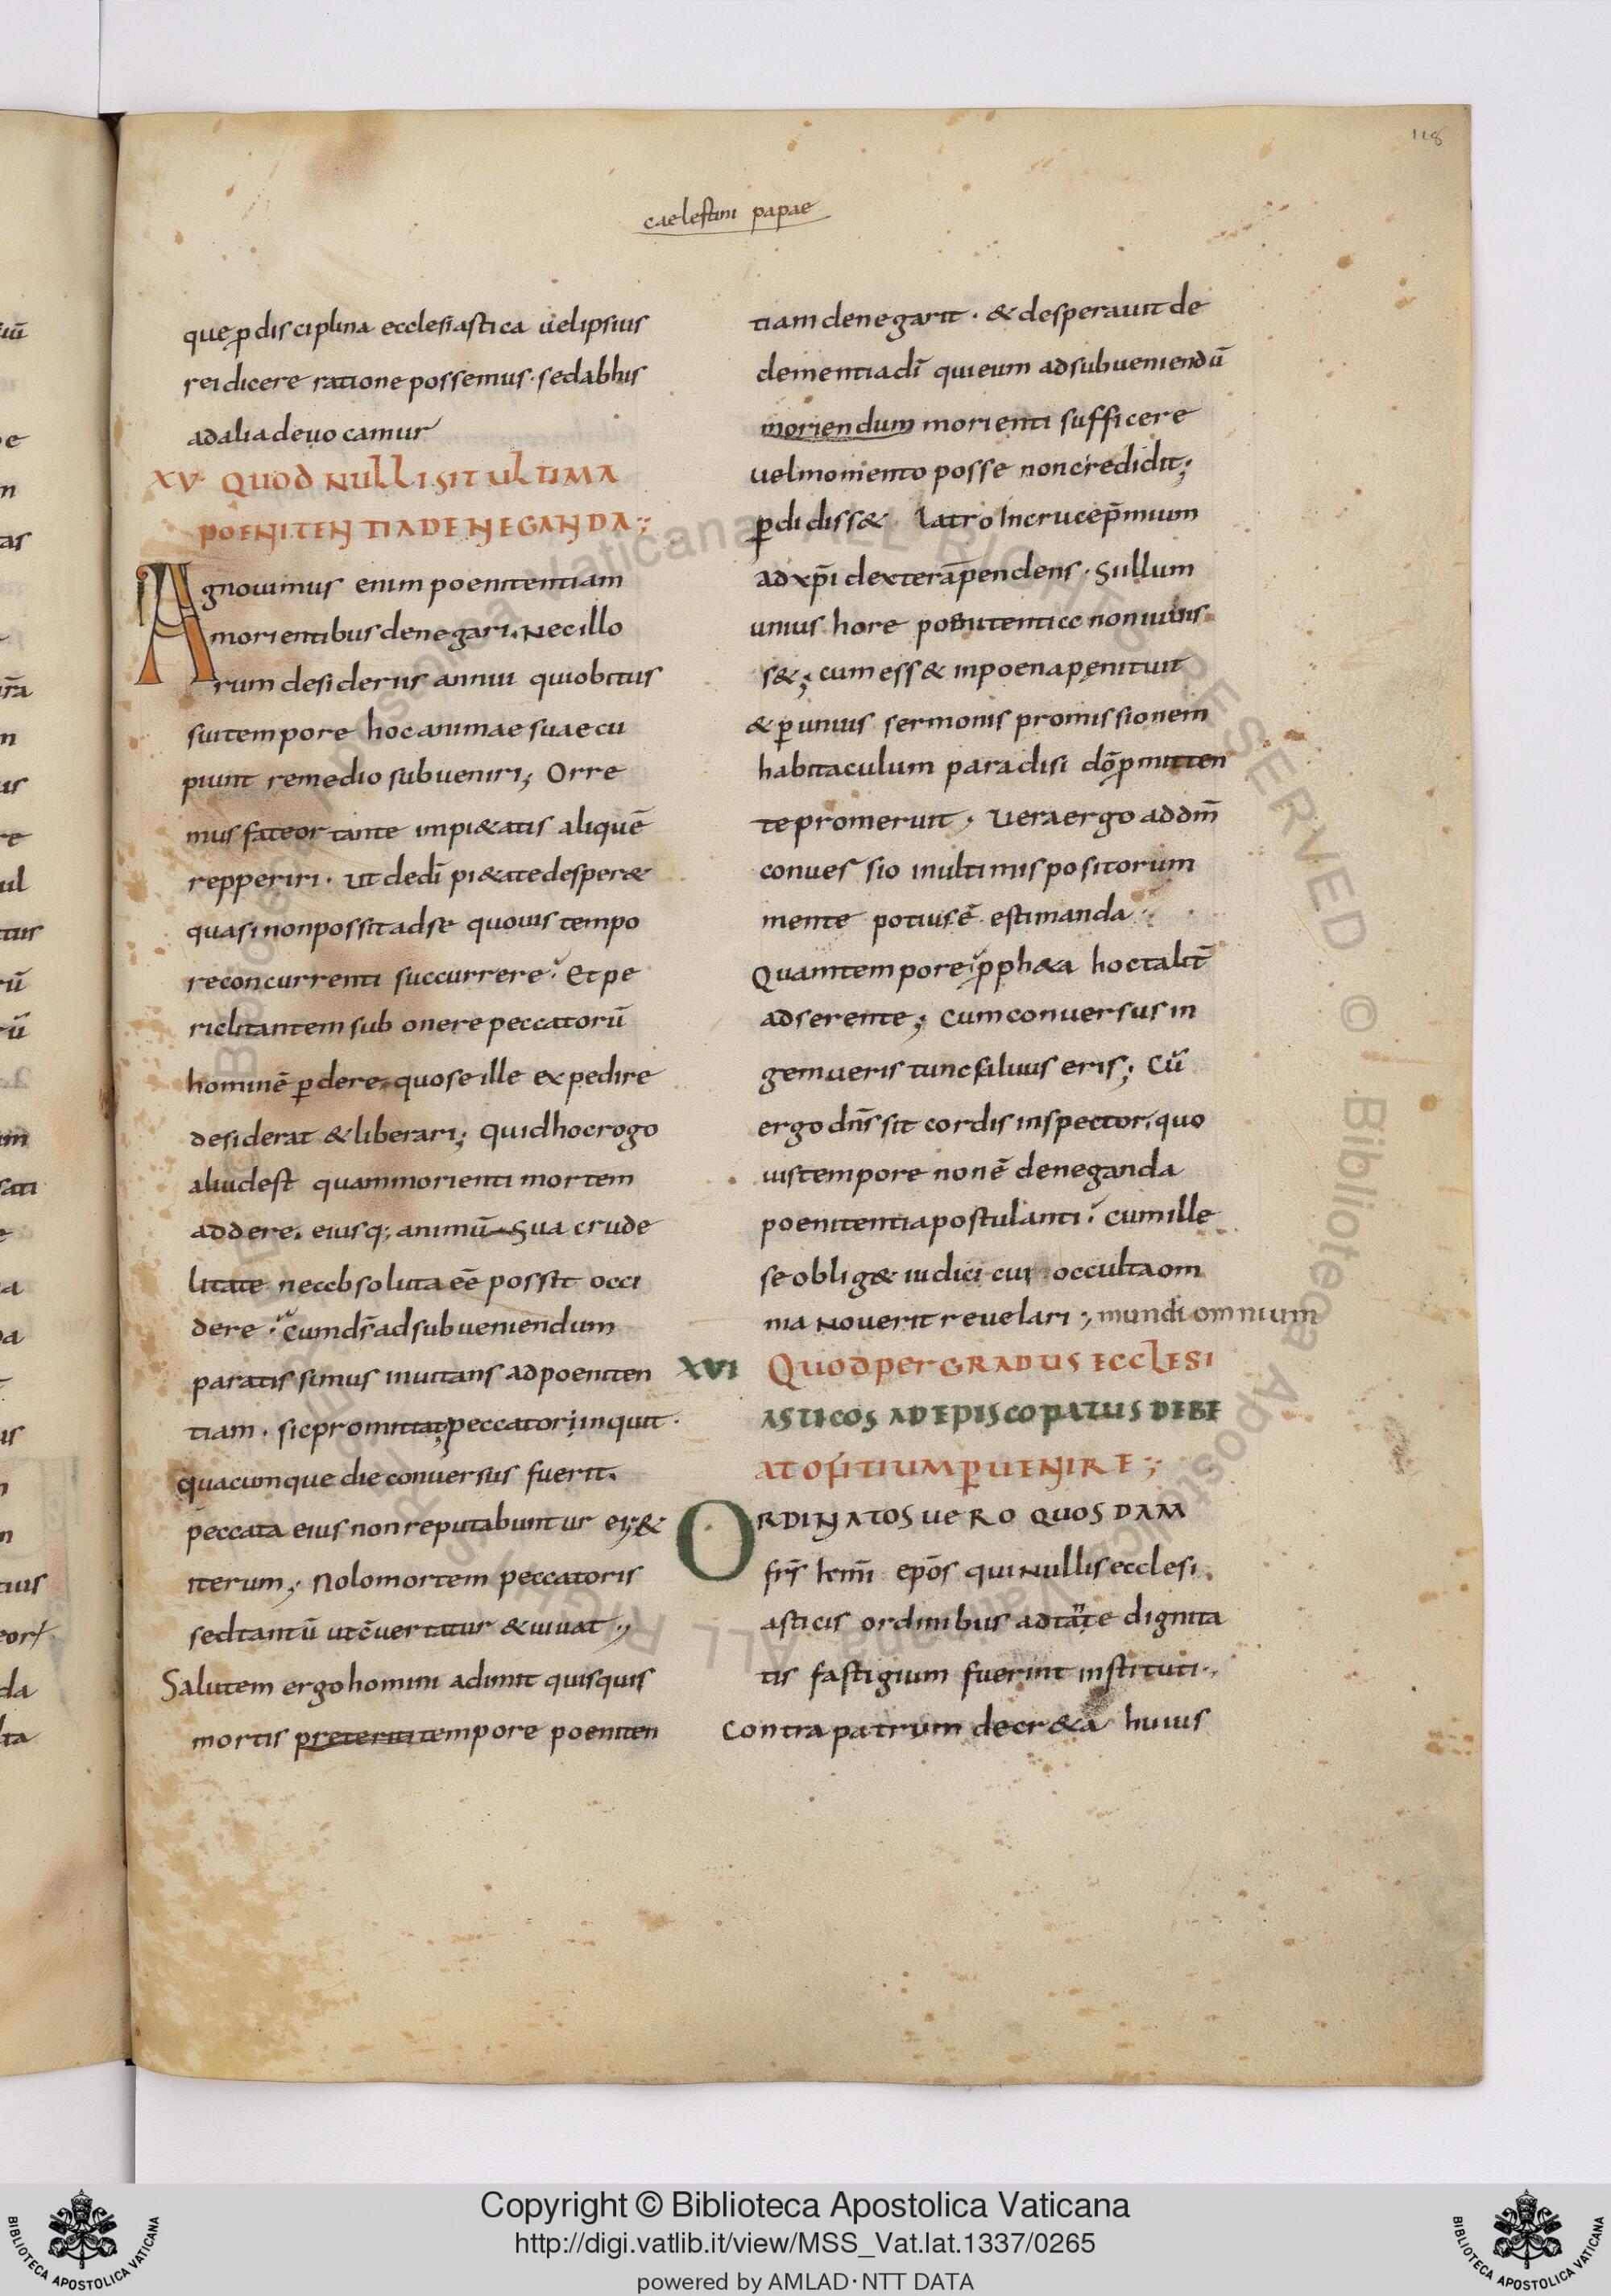 118
caelestini papae
que ꝑ disciplina ecclesiastica uel ipsius
rei dicere ratione possemus· sed ab his
ad alia deuocamur
XV· QUOD NULLI SIT ULTIMA
POENITENTIA DENEGANDA·:·
Agnouimus enim poenitentiam
morientibus denegari. Nec illo
rum desideriis annui qui obitus
sui tempore hoc animae suae cu
piunt remedio subueniri; Orre
mus fateor tante impi&atis aliquē
repperiri· Ut de dī pi&ate desper&
quasi non possit ad se quouis tempo
re concurrenti succurrere· Et pe
riclitantem sub onere peccatorū
hominē ꝑdere quo se ille expedire
desiderat & liberari; Quid hoc rogo
aliud est quam morienti mortem
addere. eiusq; animū Sua crude
litate necc bsoluta eē possit occi
dere· Cum ds̄ ad subueniendum
paratissimus inuitans ad poeniten
tiam· sic promittat peccatori inquit·
quacumque die conuersus fuerit.
peccata eius non reputabuntur ei; &
iterum; Nolo mortem peccatoris
sed tantū ut cvertatur & uiuat;
Salutem ergo homini adimit quisquis
mortis preteriti tempore poeniten
tiam denegarit· & desperauit de
clementia dī qui eum ad subueniendū
moriendum morienti sufficere
uel momento posse non credidit;
ꝑdidiss& latro In cruce p̄mium
ad xp̄i dexterā pendens· Si illum
unius hore poenitentiae non iuuis
s&; cum ess& in poena penituit
& ꝑ unius sermonis promissionem
habitaculum paradisi dō ꝑmitten
te promeruit; Uera ergo ad dm̄
conuersio in ultimis positorum
mente potius ē estimanda·
Quam tempore ꝓph&a hoc talit̄
adserente; Cum conuersus in
gemueris tunc saluus eris; Cū
ergo dn̄s sit cordis inspector. quo
uis tempore non ē deneganda
poenitentia postulanti· cum ille
se oblig& iudici cui occulta om
nia Nouerit reuelari; mundi omnium
XVI QUOD PER GRADUS ECCLESI
ASTICOS AD EPISCOPATUS DEBE
AT OFITIUM ꝑUENIRE·:·
ORDINATOS UERO QUOSDAM
frs̄ km̄i epōs qui Nullis ecclesi
asticis ordinibus ad tātę dignita
tis fastigium fuerint instituti·
Contra patrum decr&a huius
Copyright © Biblioteca Apostolica Vaticana
http://digi.vatlib.it/view/MSS_Vat.lat.1337/0265
powered by AMLAD·NTT DATA